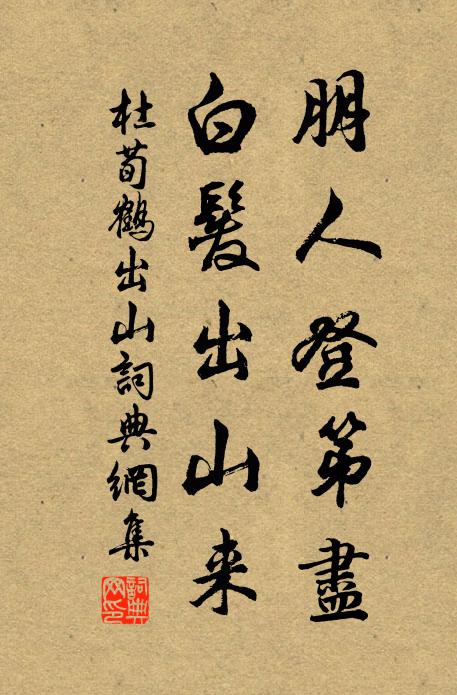 朋人登第盡
白髮出山来
杜荀鶴出山詞典網集
詞典网印